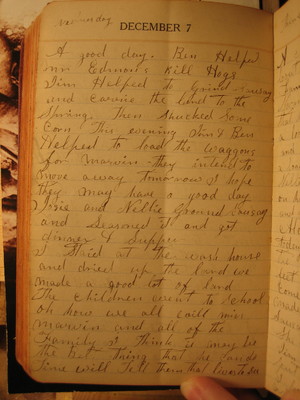 Wednesday
DECEMBER 7
A good day. Ben Helped
mr Edmons Kill Hogs
Jim Helped to grind sausag
and Carrie the land to the
Spring. Then Shucked Some
Corn This evening Jim & Ben
Helped to load the Waggons
for Marvin - they intend to
move away tomorrow I hope
they may have a good day
and Nillie Ground Sausag
and Seasoned it and got
dinner & Supper
I Staid at the wash house
and dried up the land we
made a good lot of land
The Children went to School
Oh how we all will miss
marvin and all of the
Family I think it may be
the best Thing that he can do
Time will Tell